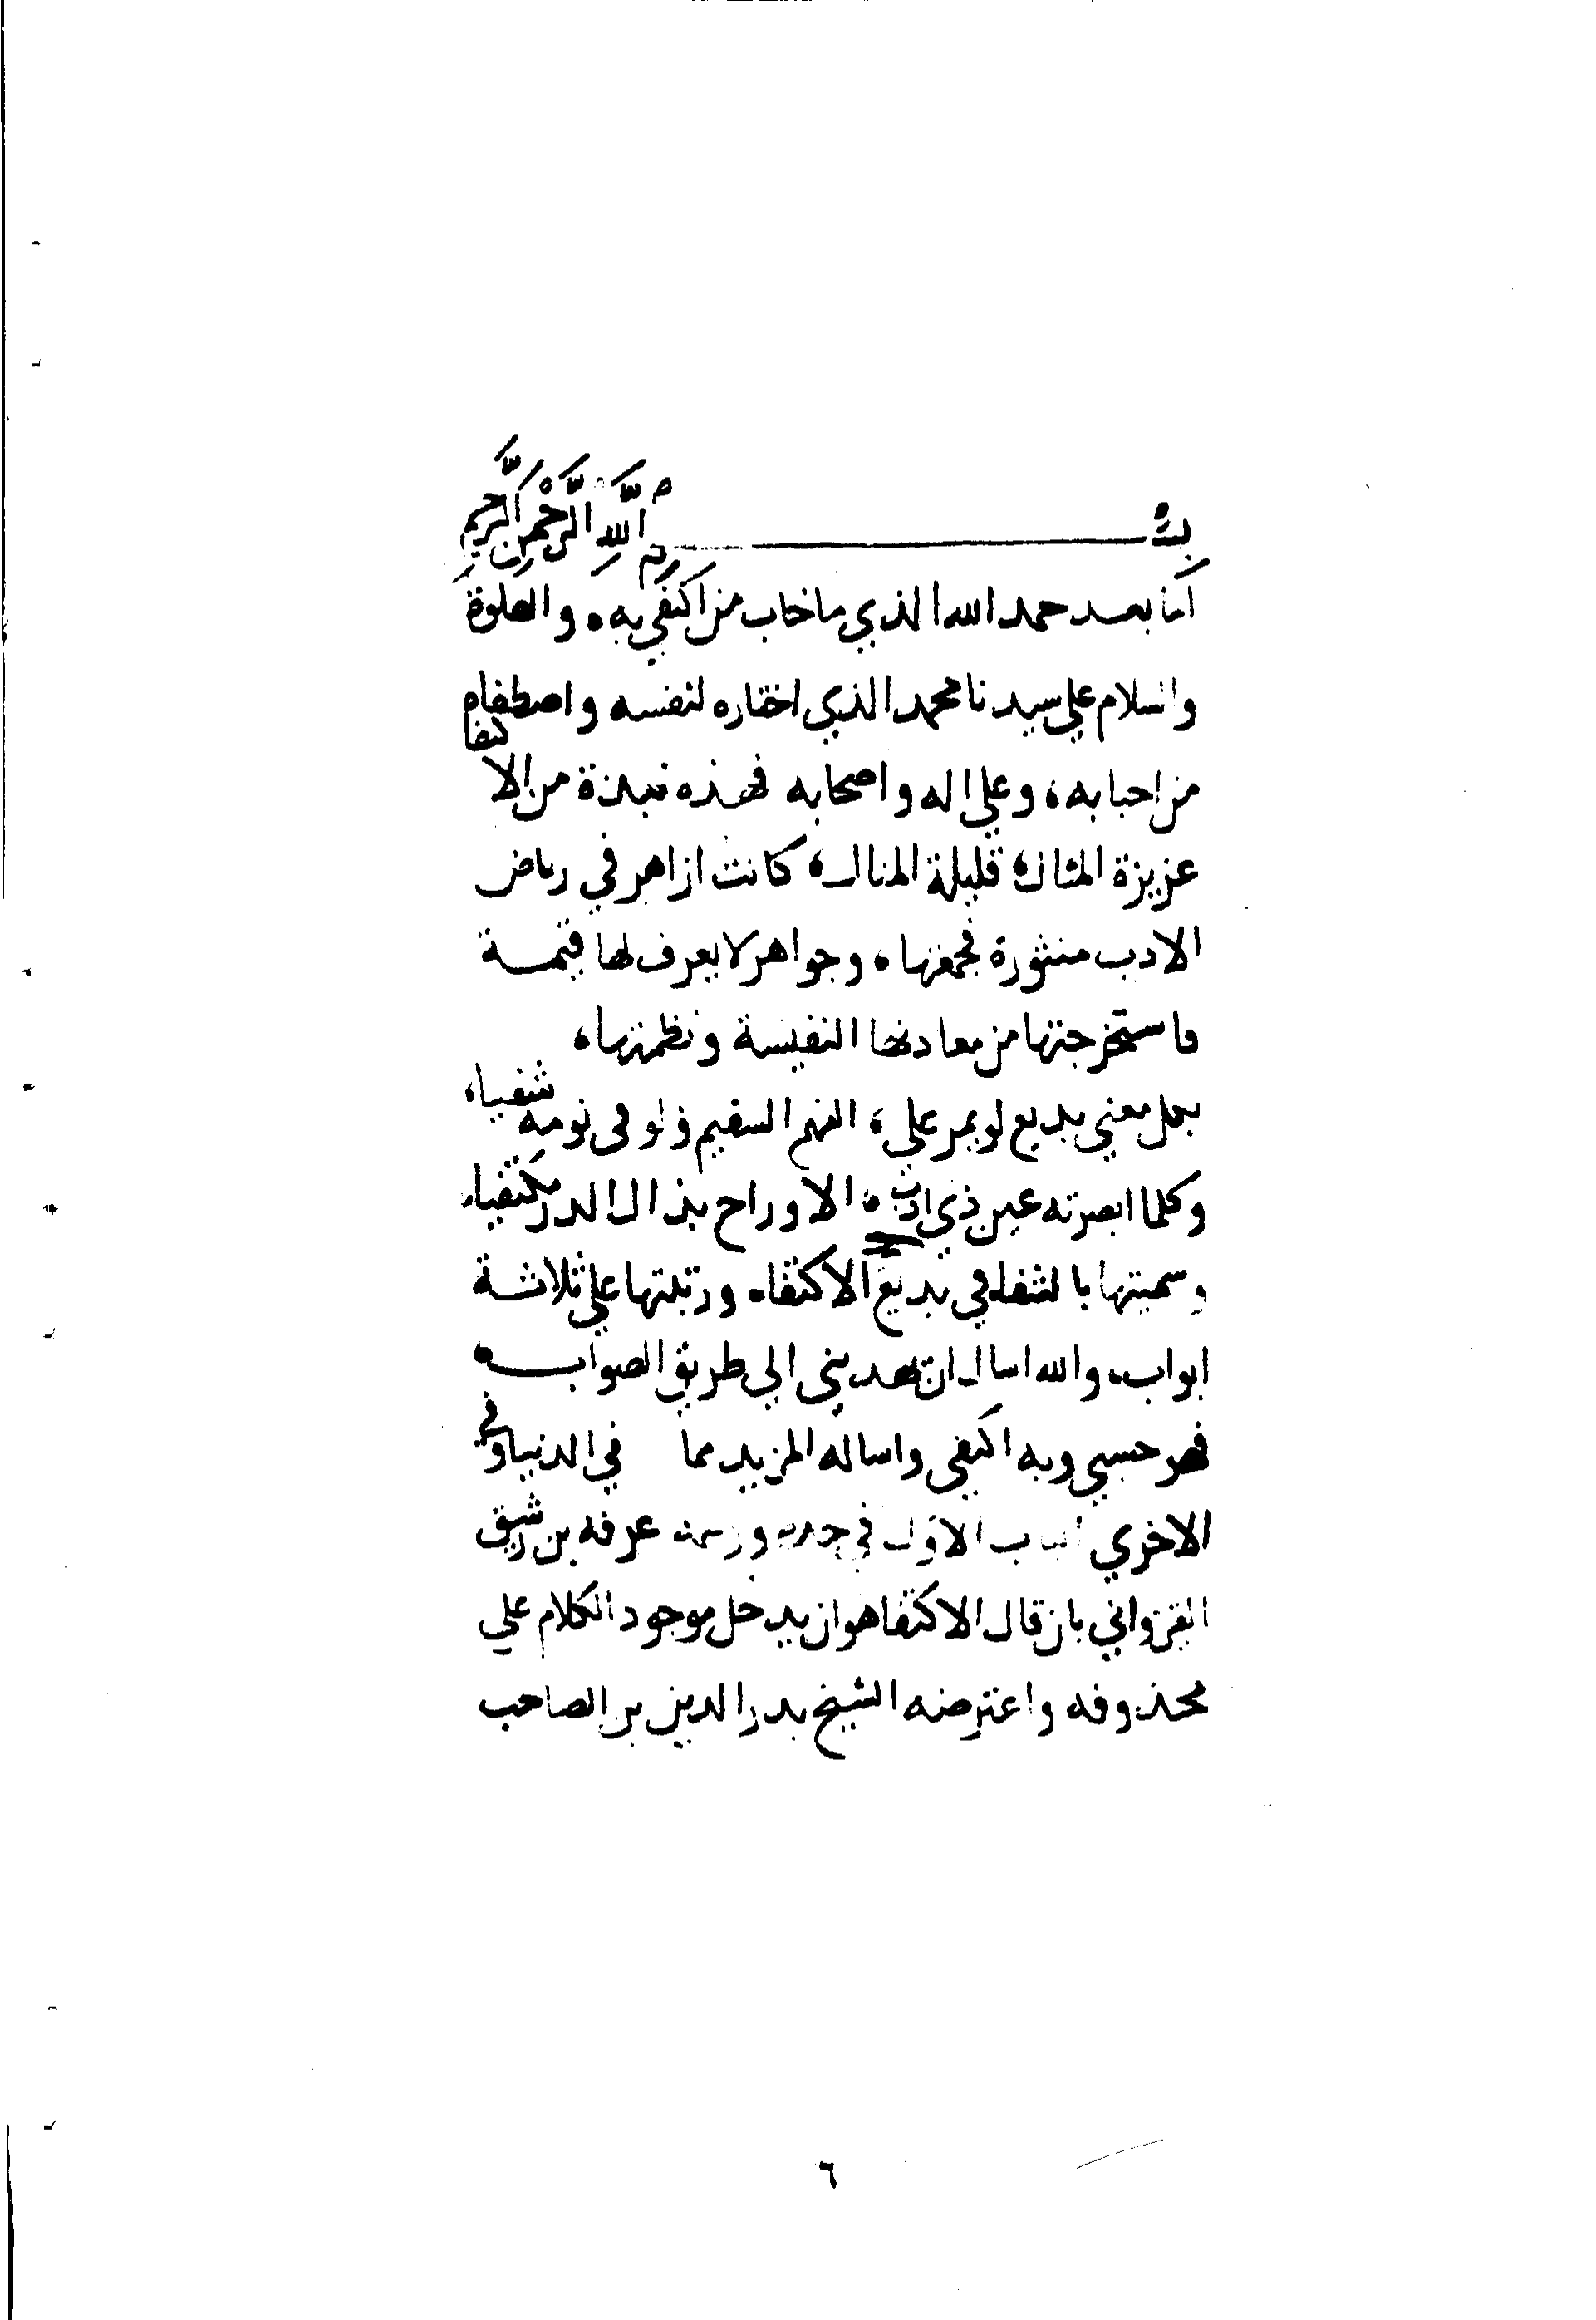 بسم الله الرحمن الرحيم
اما بعد حمد الله الذي ما خاب من اكتفي به، والصلوة
والسلام علي سيدنا محمد الذي اختاره لنفسه واصطفاه
من احبابه، وعلي اله واصحابه فهذه نبذة من الاكتفا
عزيزة المثال، قليلة المنال، كانت ازاهر في رياض
الادب منثورة فجمعتها، وجواهر لا يعرف لها قيمة
فاستخرجتها من معادنها النفيسة ونظمتها،
بكل معني بديع لو يمر علي، الفهم السقيم ولو في نومه شفيا،
وكلما ابصرته عين ذي ادب، الا وراح بذاك الدر مكتفيا،
وسميتها بالشفاء في بديع الاكتفاء ورتبتها علي ثلاثة
ابواب، والله اسال ان يهديني الي طريق الصواب،
فهو حسبي وبه اكتفي واساله المزيد مما في الدنيا وفي
الاخري الباب الاول في حده ورسمه عرفه بن رشيق
القيرواني بان قال الاكتفا هو ان يدخل موجود الكلام علي
محذوفه واعترضه الشيخ بدر الدين بن الصاحب
٦